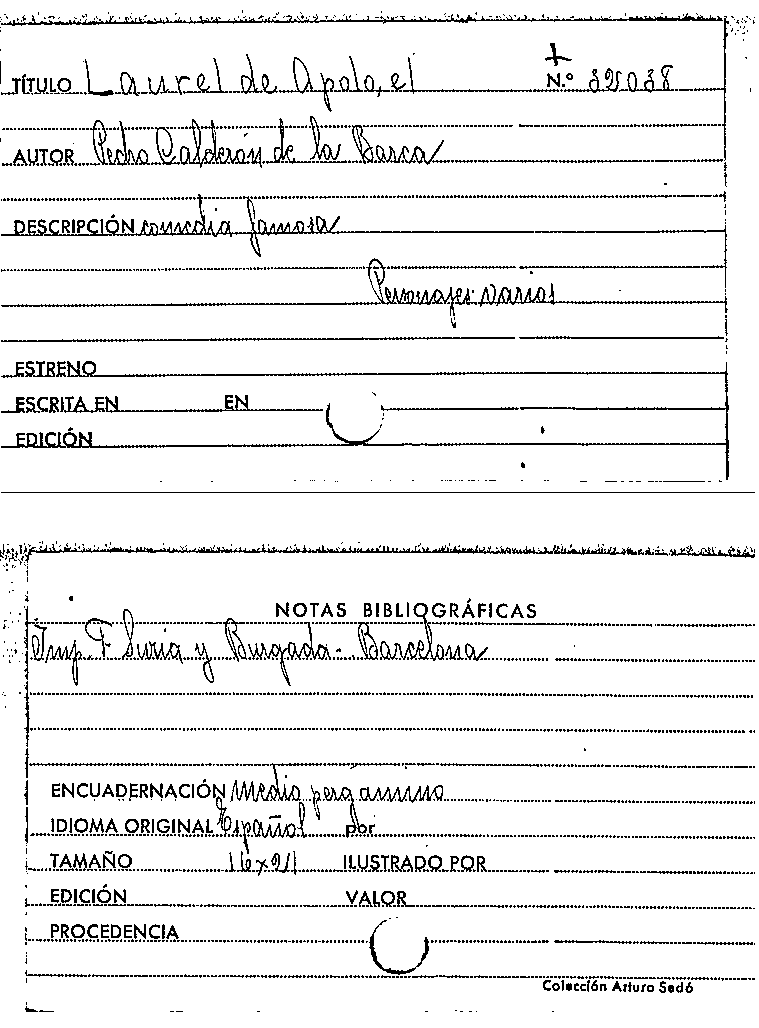 TÍTULO Laurel de Apolo, el N.º 32038
AUTOR Pedro Calderón de la Barca
DESCRIPCIÓN comedia famosa
Personajes: varios
ESTRENO
ESCRITA EN EN
EDICIÓN
NOTAS BIBLIOGRÁFICAS
Imp. F Suria y Burgada - Barcelona
ENCUADERNACIÓN Medio pergamino
IDIOMA ORIGINAL Español por
TAMAÑO 16x21 ILUSTRADO POR
EDICIÓN VALOR
PROCEDENCIA
Colección Arturo Sedó